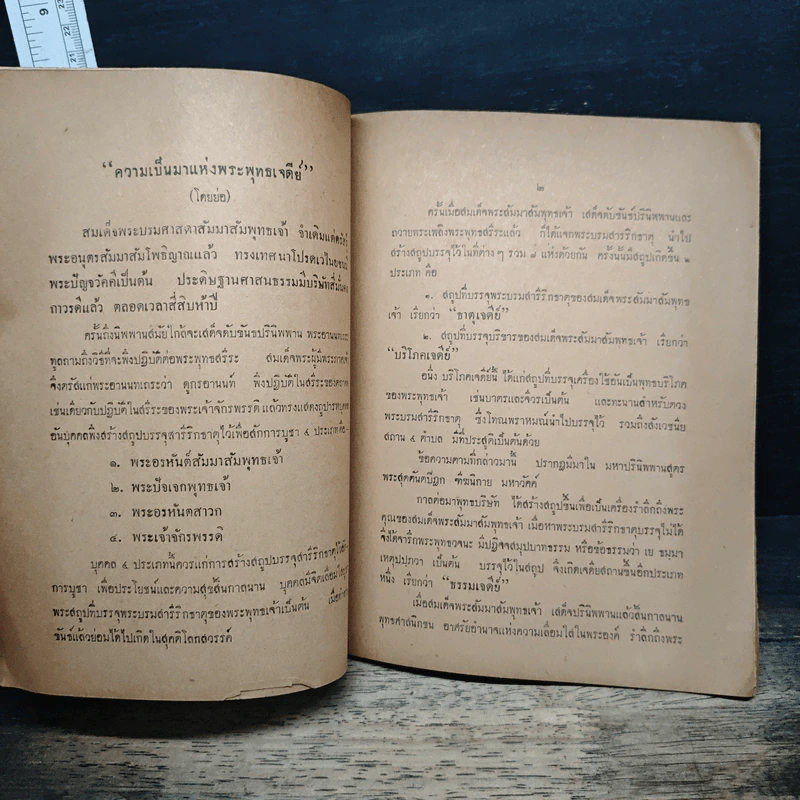 9
22
21
“ความเป็นมาแห่งพระพุทธเจดีย์”
(โดยย่อ)
สมเด็จพระบรมศาสดาสัมมาสัมพุทธเจ้า จำเดิมแต่ตรัสรู้
พระอนุตรสัมมาสัมโพธิญาณแล้ว ทรงเทศนาโปรดเวไนยชนมี
พระปัญจวัคคีย์เป็นต้น ประดิษฐานศาสนธรรมมีบริษัทสี่มั่นคง
ถาวรดีแล้ว ตลอดเวลาสี่สิบห้าปี
ครั้นถึงนิพพานสมัยใกล้จะเสด็จดับขันธปรินิพพาน พระอานนท
ทูลถามถึงวิธีที่จะพึงปฏิบัติต่อพระพุทธสรีระ สมเด็จพระผู้มีพระภาคเจ้า
จึงตรัสแก่พระอานนทเถระว่า ดูกรอานนท์ พึงปฏิบัติในสรีระของตถาคต
เช่นเดียวกับปฏิบัติในสรีระของพระเจ้าจักรพรรดิ แล้วทรงแสดงถูปารหบุคคล
อันบุคคลพึงสร้างสถูปบรรจุสารีริกธาตุไว้เพื่อสักการบูชา ๔ ประเภทคือ
๑. พระอรหันต์สัมมาสัมพุทธเจ้า
๒. พระปัจเจกพุทธเจ้า
๓. พระอรหันตสาวก
๔. พระเจ้าจักรพรรดิ
บุคคล ๔ ประเภทนี้ควรแก่การสร้างสถูปบรรจุสารีริกธาตุไว้
การบูชา เพื่อประโยชน์และความสุขสิ้นกาลนาน บุคคลมีจิตเลื่อมใส
พระสถูปที่บรรจุพระบรมสารีริกธาตุของพระพุทธเจ้าเป็นต้น เมื่อ
ขันธ์แล้วย่อมได้ไปเกิดในสุคติโลกสวรรค์
๒
ครั้นเมื่อสมเด็จพระสัมมาสัมพุทธเจ้า เสด็จดับขันธ์ปรินิพพานและ
ถวายพระเพลิงพระพุทธสรีระแล้ว ก็ได้แจกพระบรมสารีริกธาตุ นำไป
สร้างสถูปบรรจุไว้ในที่ต่างๆ รวม ๘ แห่งด้วยกัน ครั้งนั้นมีสถูปเกิดขึ้น ๒
ประเภท คือ
๑. สถูปที่บรรจุพระบรมสารีริกธาตุของสมเด็จพระสัมมาสัมพุทธ
เจ้า เรียกว่า “ธาตุเจดีย์”
๒. สถูปที่บรรจุบริขารของสมเด็จพระสัมมาสัมพุทธเจ้า เรียกว่า
“บริโภคเจดีย์”
อนึ่ง บริโภคเจดีย์นี้ ได้แก่สถูปที่บรรจุเครื่องใช้อันเป็นพุทธบริโภค
ของพระพุทธเจ้า เช่นบาตรและจีวรเป็นต้น และทะนานสำหรับตวง
พระบรมสารีริกธาตุ ซึ่งโทณพราหมณ์นำไปบรรจุไว้ รวมถึงสังเวชนีย
สถาน ๔ ตำบล มีที่ประสูติเป็นต้นด้วย
ข้อความตามที่กล่าวมานี้ ปรากฏมีมาใน มหาปรินิพพานสูตร
พระสุตตันตปิฎก ทีฆนิกาย มหาวัคค์
กาลต่อมาพุทธบริษัท ได้สร้างสถูปขึ้นเพื่อเป็นเครื่องรำลึกถึงพระ
คุณของสมเด็จพระสัมมาสัมพุทธเจ้า เมื่อหาพระบรมสารีริกธาตุบรรจุไม่ได้
จึงได้จารึกพระพุทธวจนะ มีปฏิจจสมุปบาทธรรม หรือข้อธรรมว่า เย ธมฺมา
เหตุปฺปภวา เป็นต้น บรรจุไว้ในสถูป จึงเกิดเจดียสถานขึ้นอีกประเภท
หนึ่ง เรียกว่า “ธรรมเจดีย์”
เมื่อสมเด็จพระสัมมาสัมพุทธเจ้า เสด็จปรินิพพานแล้วสิ้นกาลนาน
พุทธศาสนิกชน อาศรัยอำนาจแห่งความเลื่อมใสในพระองค์ รำลึกถึงพระ